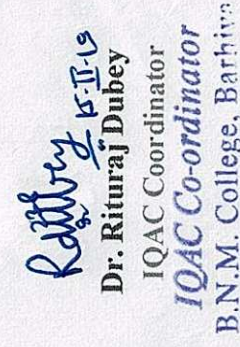 Dr. Rituraj Dubey
IQAC Coordinator
IQAC Co-ordinator
B.N.M. College, Barhiya